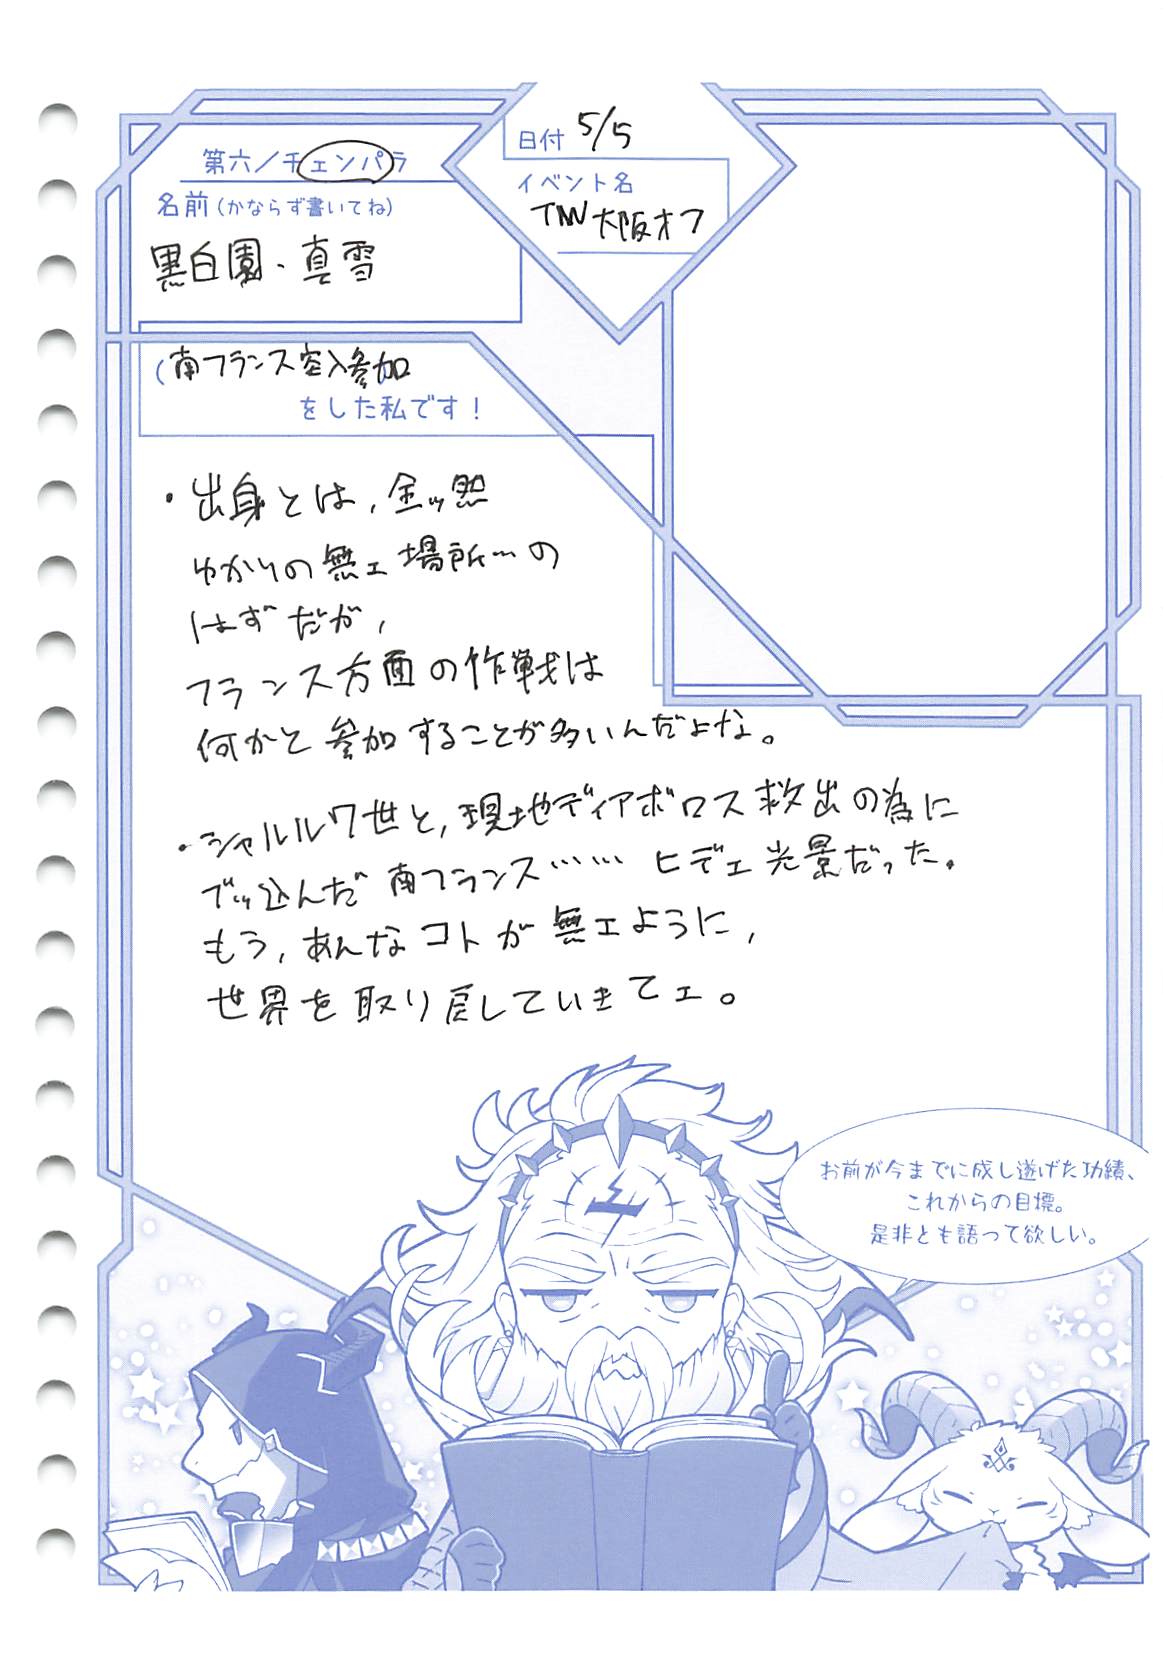 第六／チェンパラ
名前(かならず書いてね)
黒白園・真雪
日付 5/5
イベント名
TW大阪オフ
(南フランス突入参加
をした私です！
・出身とは、全ッ然
ゆかりの無ェ場所…の
はずだが、
フランス方面の作戦は
何かと参加することが多いんだよな。
・シャルル7世と、現地ディアボロス救出の為に
ブッ込んだ南フランス……ヒデェ光景だった。
もう、あんなコトが無ェように、
世界を取り戻していきてェ。
お前が今までに成し遂げた功績、
これからの目標。
是非とも語って欲しい。